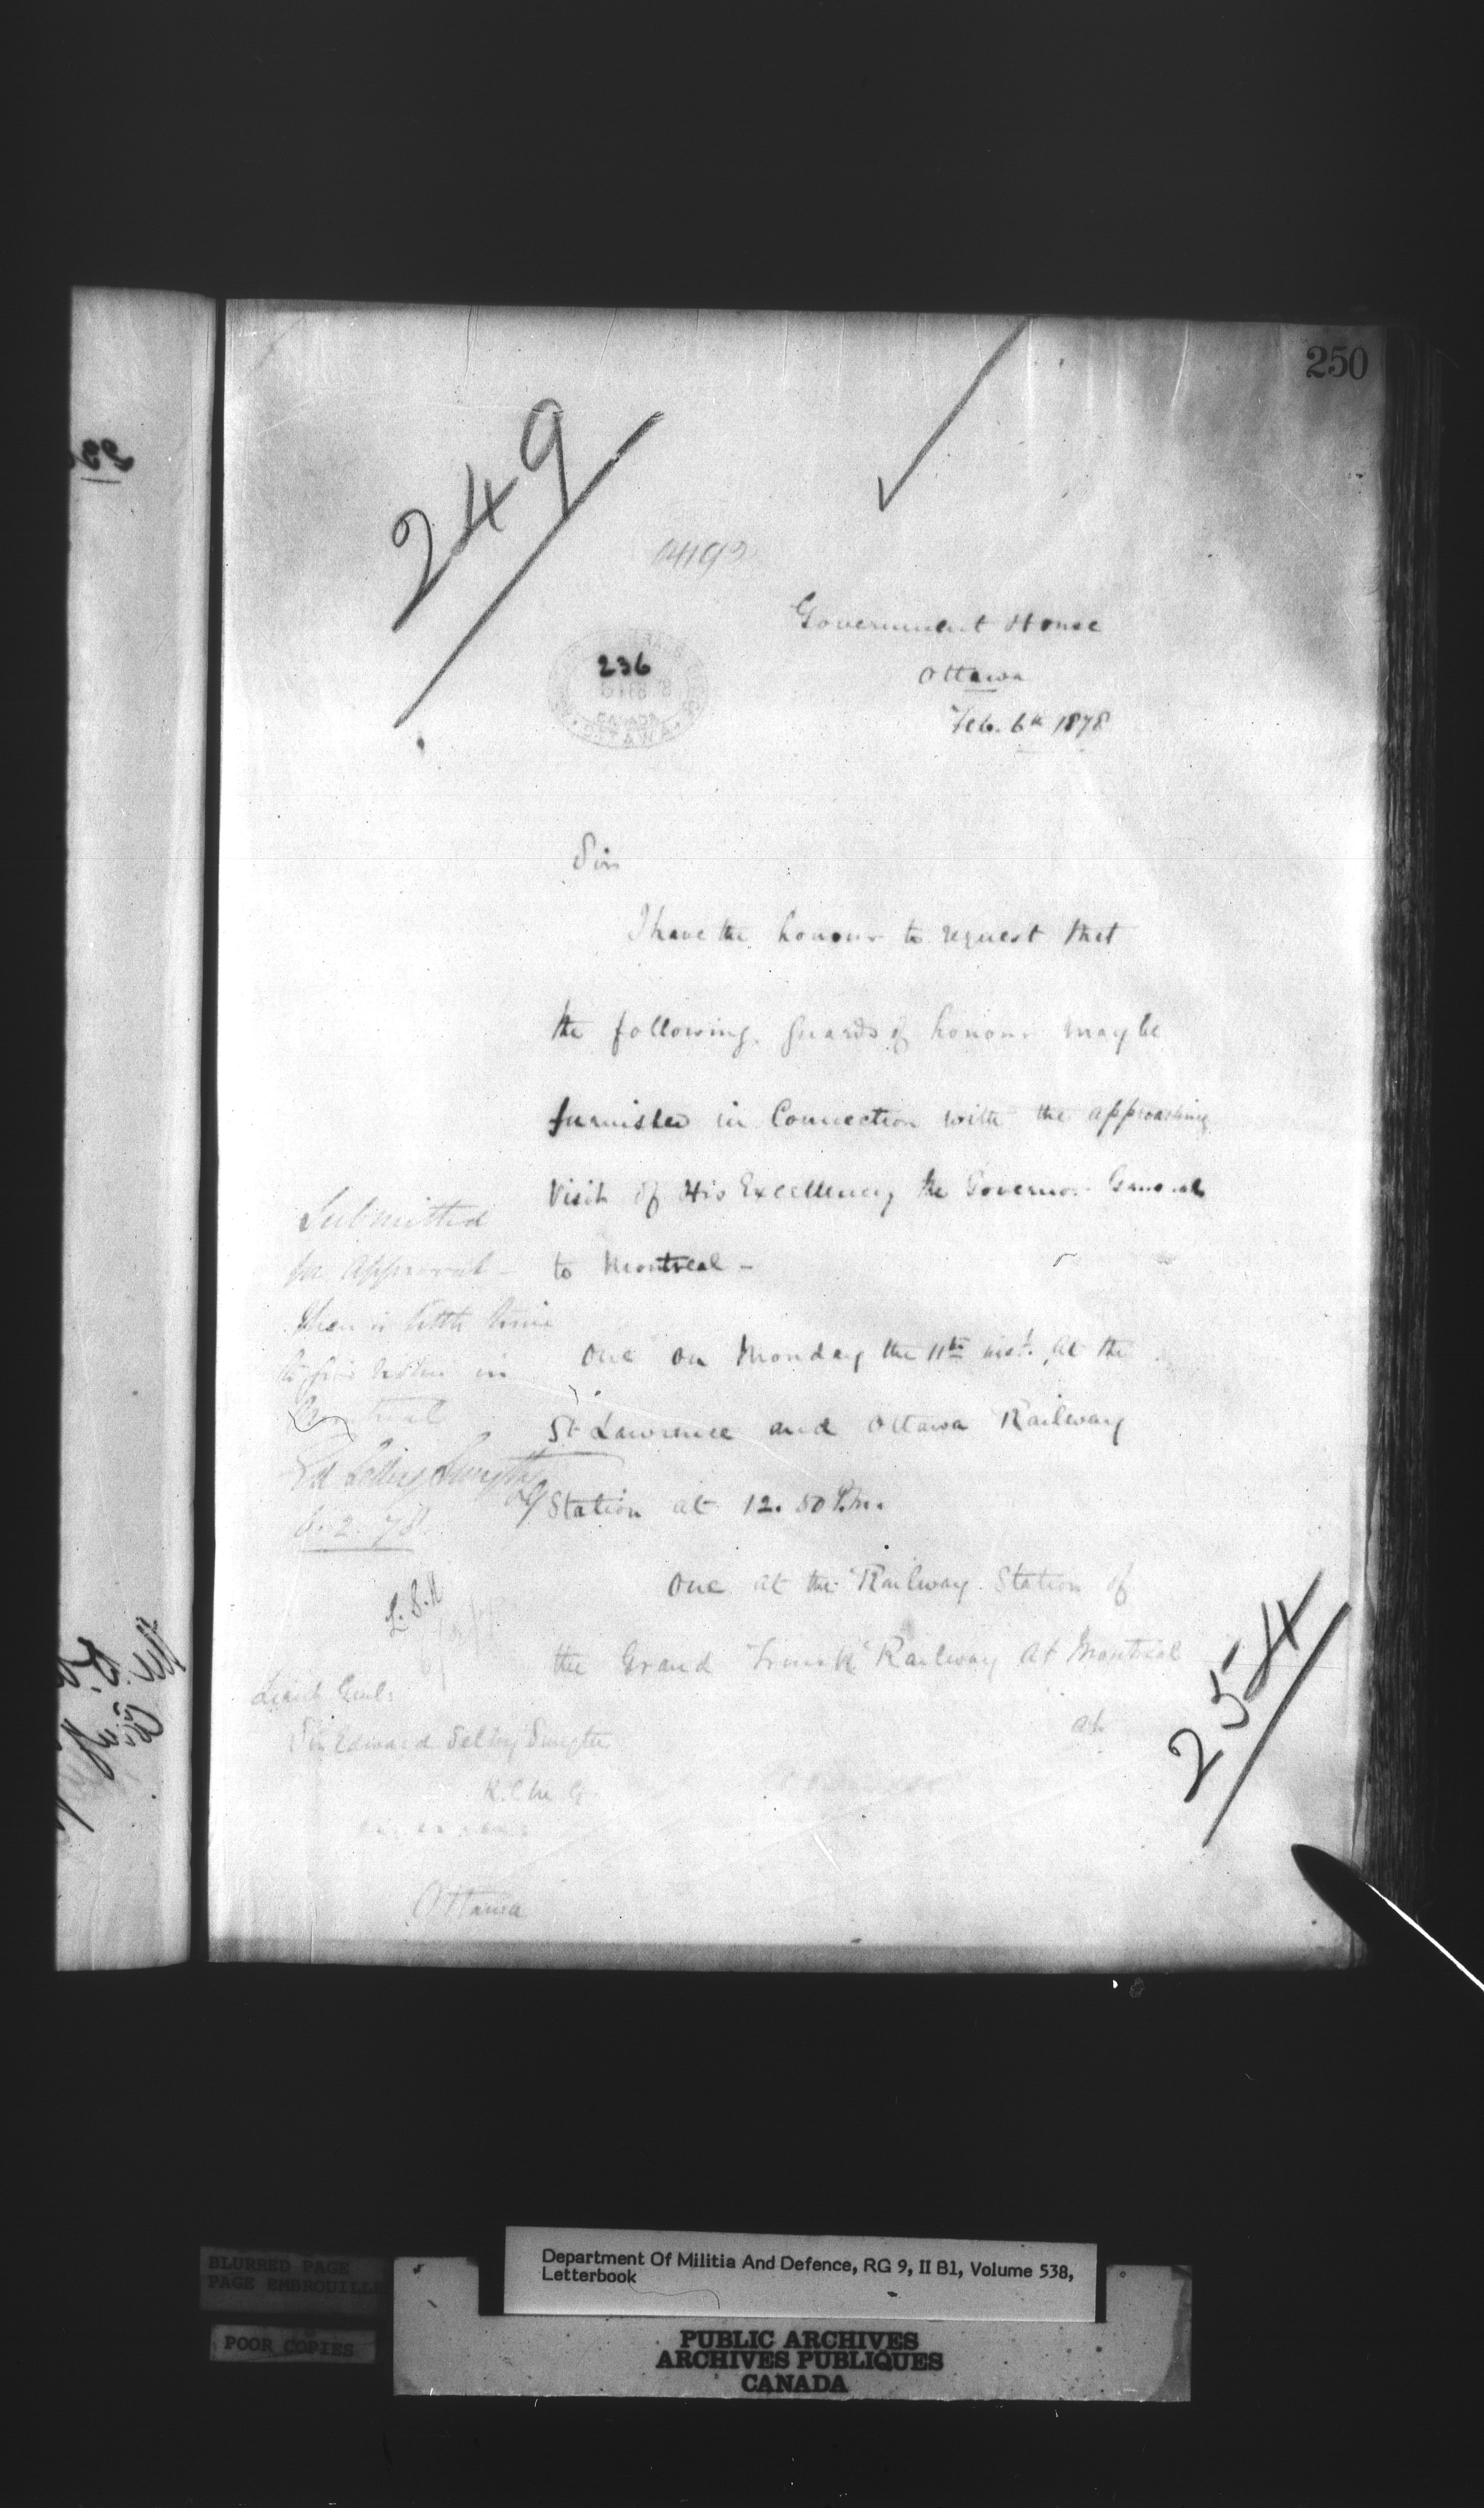 250
249
04193
236
CANADA
OTTAWA
Government House
Ottawa
Feb. 6th 1878
Sir
I have the honour to request that
the following guards of honour may be
furnished in Connection with the approaching
Visit of His Excellency the Governor General
to Montreal -
One on Monday the 11th inst. at the
St Lawrence and Ottawa Railway
Station at 12.50 P.m.
One at the Railway Station of
the Grand Trunk Railway at Montreal
at
Submitted
for approval -
There is little time
to give notice in
Montreal
Ed Selby Smyth
6.2.78
Lieut Genl:
Sir Edward Selby Smyth
K.C.M.G
Ottawa
254
BLURRED PAGE
PAGE EMBROUILLE
POOR COPIES
Department Of Militia And Defence, RG 9, II B1, Volume 538,
Letterbook
PUBLIC ARCHIVES
ARCHIVES PUBLIQUES
CANADA